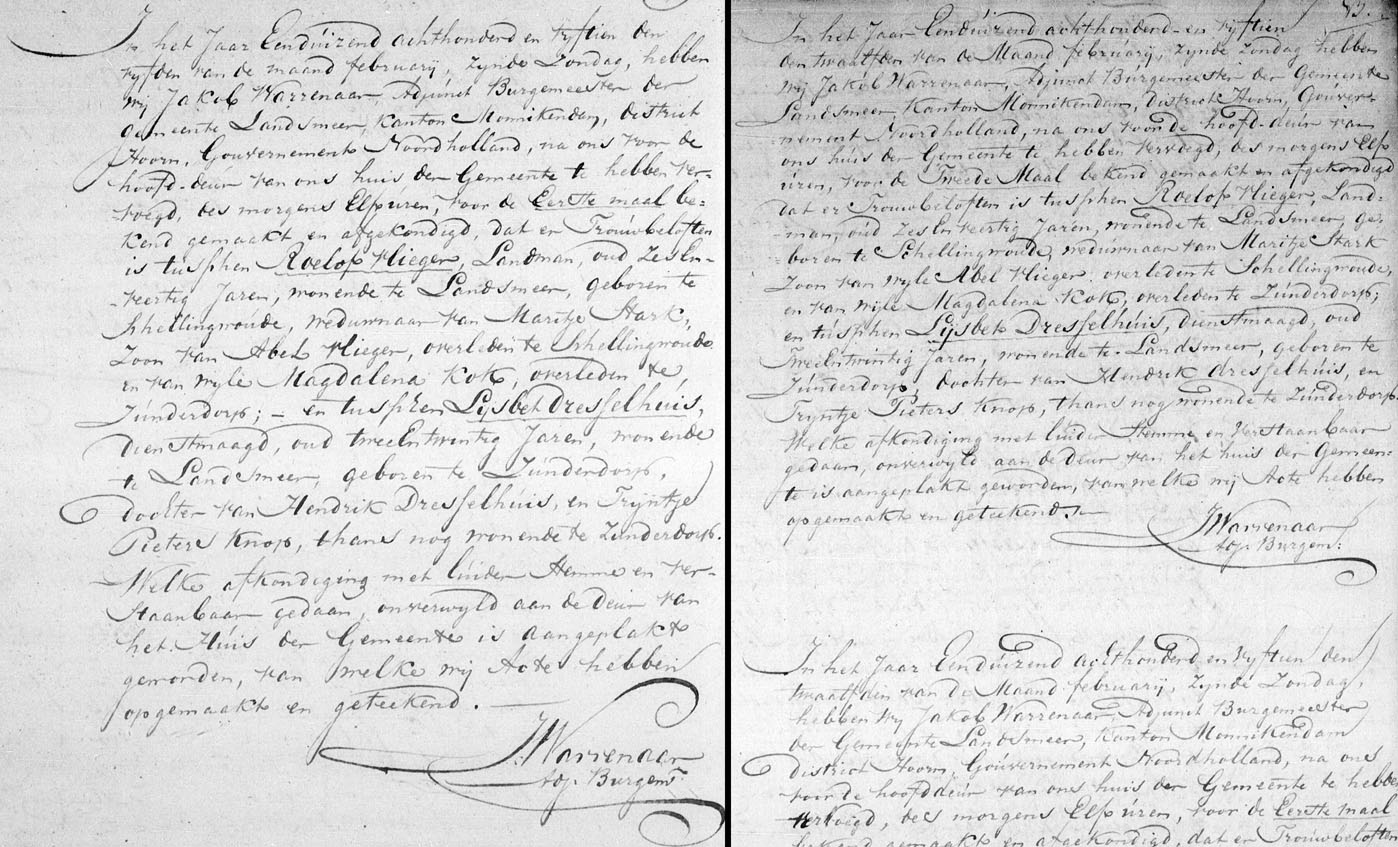 In het Jaar Eenduizend achthonderd en vyftien den
vyfden van de maand february, zynde Zondag, hebben
wij Jakob Warrenaar, Adjunct Burgemeester der
Gemeente Landsmeer, Kanton Monnikendam, district
Hoorn, Gouvernement Noordholland, na ons voor de
hoofd-deur van ons huis der Gemeente te hebben ver=
voegd, des morgens Elf uren, voor de Eerste maal be=
kend gemaakt en afgekondigd, dat er Trouwbeloften
is tusschen Roelof Vlieger, Landman, oud Zes En-
-veertig Jaren, wonende te Landsmeer, geboren te
Schellingwoude, weduwnaar van Maritje Stark,
Zoon van Abel Vlieger, overleden te Schellingwoude
en van wyle Magdalena Kok, overleden te
Zunderdorp; – en tusschen Lysbet Dresselhuis,
dienstmaagd, oud twee Entwintig Jaren, wonende
te Landsmeer, geboren te Zunderdorp,
dochter van Hendrik Dresselhuis, en Tryntje
Pieters Knop, thans nog wonende te Zunderdorp.
Welke afkondiging met luider stemme en ver-
staanbaar gedaan, onverwyld aan de deur van
het Huis der Gemeente is aangeplakt
geworden, van welke wij Acte hebben
opgemaakt en geteekend. —
J. Warrenaar
adj. Burgemr.
In het Jaar Eenduizend achthonderd-en vyftien
den twaalfden van de Maand february, zynde Zondag hebben
wij Jakob Warrenaar, Adjunct Burgemeester der Gemeente
Landsmeer, Kanton Monnikendam, district Hoorn, Gouver=
nement Noordholland, na ons voor de hoofd-deur van
ons huis der Gemeente te hebben vervoegd, des morgens Elf
uren, voor de Tweede Maal bekend gemaakt en afgekondigd
dat er Trouwbeloften is tusschen Roelof Vlieger, Land=
-man, oud Zes En veertig Jaren, wonende te Landsmeer, ge=
boren te Schellingwoude, weduwnaar van Maritje Stark
Zoon van wyle Abel Vlieger, overleden te Schellingwoude,
en van wijle Magdalena Kok, overleden te Zunderdorp;
en tusschen Lijsbet Dresselhuis, dienstmaagd, oud
Twee Entwintig Jaren, wonende te Landsmeer, geboren te
Zunderdorp, dochter van Hendrik dresselhuis, en
Tryntje Pieters Knop, thans nog wonende te Zunderdorp.
Welke afkondiging met luider Stemme en Verstaanbaar
gedaan, onverwyld aan de Deur van het huis der Gemeen=
te is aangeplakt geworden, van welke wij Acte hebben
opgemaakt en geteekend.
J Warrenaar
adj. Burgem:
In het Jaar Eenduizend achthonderd en Vyftien den
twaalfden van de Maand february, zynde Zondag,
hebben Wy Jakob Warrenaar, Adjunct Burgemeester
der Gemeente Landsmeer, Kanton Monnikendam
district Hoorn, Gouvernement Noordholland, na ons
voor de hoofddeur van ons huis der Gemeente te hebben
vervoegd, des morgens Elf uren, voor de Eerste maal
bekend gemaakt en afgekondigd, dat er Trouwbeloften